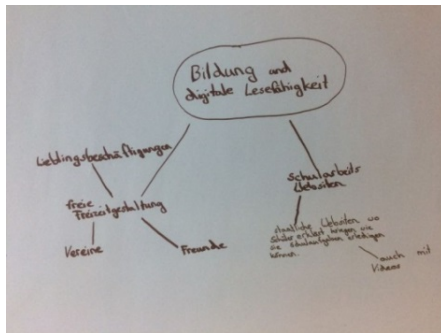 Bildung und
digitale Lesefähigkeit
Lieblingsbeschäftigungen
freie
Freizeitgestaltung
Vereine
Freunde
Schularbeits
Websiten
staatliche Websiten wo
Schüler erklärt kriegen wie
sie Schulaufgaben erledigen
können.
auch mit
Videos